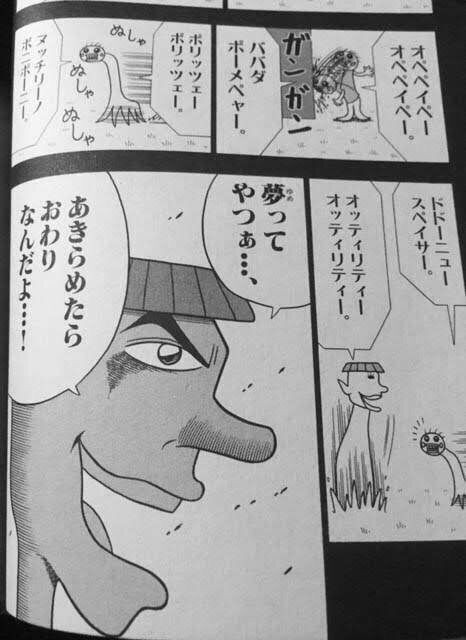 オペペイペー
オペペイペー。
ガンガン
ババダ
ボーメペャー。
ポリッツェー
ポリッツェー。
ぬしゃ
ぬしゃ
ぬしゃ
ヌッチリーノ
ボニボーニー。
ドドーニュー
スペイサー。
オッティリティー
オッティリティー。
夢って
ゆめ
やつぁ…、
あきらめたら
おわり
なんだよ…!